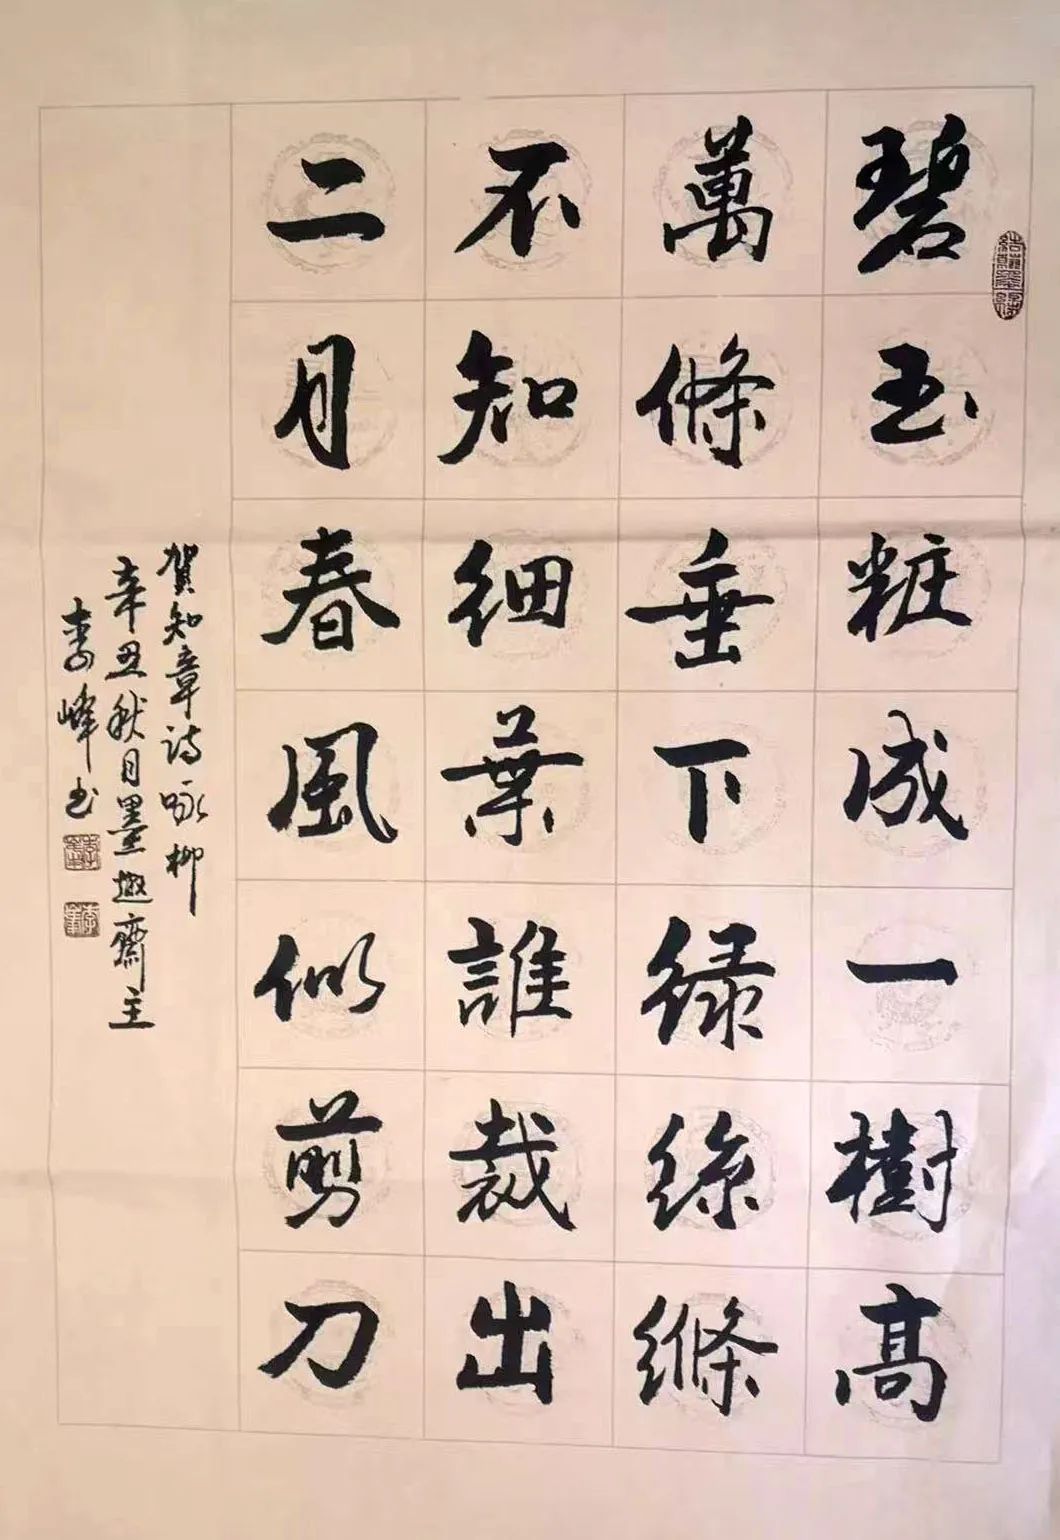 碧玉粧成一樹高
萬條垂下緑絲絛
不知細葉誰裁出
二月春風似剪刀
賀知章诗咏柳
辛丑秋月墨趣齋主
李峰书